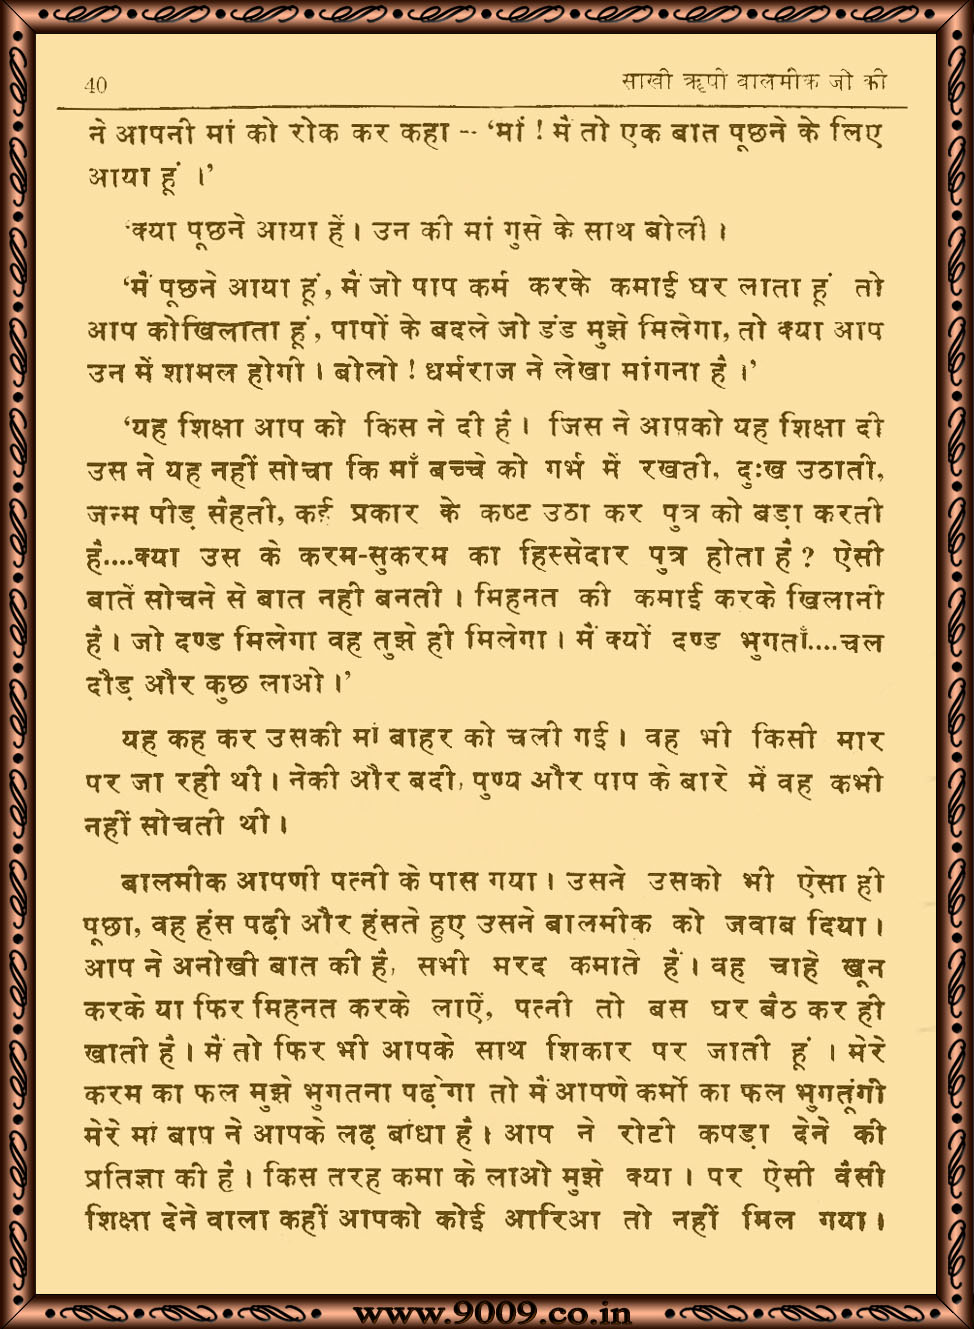 40 साखी ऋषी वालमीक जी की
ने आपनी मां को रोक कर कहा -- ‘मां ! मैं तो एक बात पूछने के लिए
आया हूं ।’
‘क्या पूछने आया हें। उन की मां गुसे के साथ बोली ।
‘मैं पूछने आया हूं, मैं जो पाप कर्म करके कमाई घर लाता हूं तो
आप कोखिलाता हूं, पापों के बदले जो डंड मुझे मिलेगा, तो क्या आप
उन में शामल होगी । बोलो ! धर्मराज ने लेखा मांगना है ।’
‘यह शिक्षा आप को किस ने दी है। जिस ने आपको यह शिक्षा दी
उस ने यह नहीं सोचा कि माँ बच्चे को गर्भ में रखती, दुःख उठाती,
जन्म पीड़ सैहती, कई प्रकार के कष्ट उठा कर पुत्र को बड़ा करती
है....क्या उस के करम-सुकरम का हिस्सेदार पुत्र होता है ? ऐसी
बातें सोचने से बात नही बनती । मिहनत की कमाई करके खिलानी
है । जो दण्ड मिलेगा वह तुझे ही मिलेगा । मैं क्यों दण्ड भुगताँ....चल
दौड़ और कुछ लाओ ।’
यह कह कर उसकी मां बाहर को चली गई । वह भी किसी मार
पर जा रही थी । नेकी और बदी, पुण्य और पाप के बारे में वह कभी
नहीं सोचती थी ।
बालमीक आपणी पत्नी के पास गया । उसने उसको भी ऐसा ही
पूछा, वह हंस पढ़ी और हंसते हुए उसने बालमीक को जवाब दिया ।
आप ने अनोखी बात की है, सभी मरद कमाते हैं । वह चाहे खून
करके या फिर मिहनत करके लाऐं, पत्नी तो बस घर बैठ कर ही
खाती है । मैं तो फिर भी आपके साथ शिकार पर जाती हूं । मेरे
करम का फल मुझे भुगतना पढ़ेगा तो मैं आपणे कर्मो का फल भुगेतूंगी
मेरे मां बाप ने आपके लढ़ बांधा है । आप ने रोटी कपड़ा देने की
प्रतिज्ञा की है । किस तरह कमा के लाओ मुझे क्या । पर ऐसी वैसी
शिक्षा देने वाला कहीं आपको कोई आरिआ तो नहीं मिल गया ।
www.9009.co.in